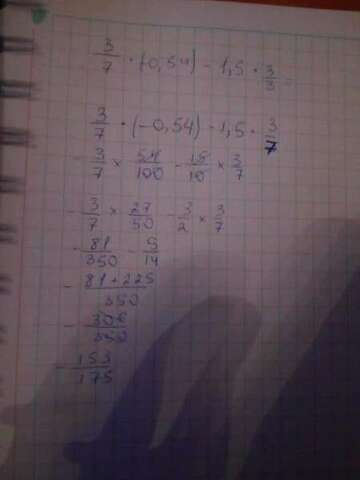 3/7 · (-0,54) - 1,5 · 3/3 =
3/7 · (-0,54) - 1,5 · 3/7
- 3/7 × 54/100 - 15/10 × 3/7
- 3/7 × 27/50 - 3/2 × 3/7
- 81/350 - 9/14
- 81+225/350
- 306/350
- 153/175